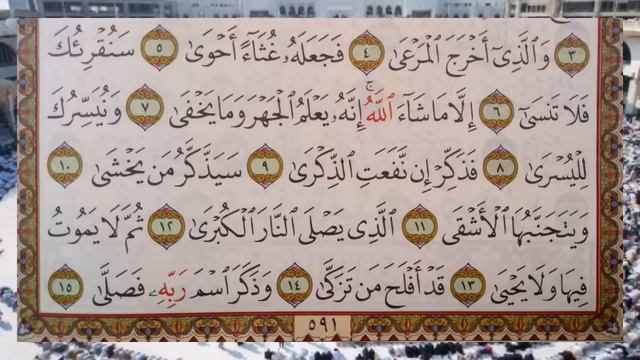 ٣ وَالَّذِىٓ أَخْرَجَ الْمَرْعَىٰ ٤ فَجَعَلَهُۥ غُثَآءً أَحْوَىٰ ٥ سَنُقْرِئُكَ
فَلَا تَنسَىٰٓ ٦ إِلَّا مَا شَآءَ اللَّهُ ۚ إِنَّهُۥ يَعْلَمُ الْجَهْرَ وَمَا يَخْفَىٰ ٧ وَنُيَسِّرُكَ
لِلْيُسْرَىٰ ٨ فَذَكِّرْ إِن نَّفَعَتِ الذِّكْرَىٰ ٩ سَيَذَّكَّرُ مَن يَخْشَىٰ ١٠
وَيَتَجَنَّبُهَا الْأَشْقَى ١١ الَّذِى يَصْلَى النَّارَ الْكُبْرَىٰ ١٢ ثُمَّ لَا يَمُوتُ
فِيهَا وَلَا يَحْيَىٰ ١٣ قَدْ أَفْلَحَ مَن تَزَكَّىٰ ١٤ وَذَكَرَ اسْمَ رَبِّهِۦ فَصَلَّىٰ ١٥
٥٩١